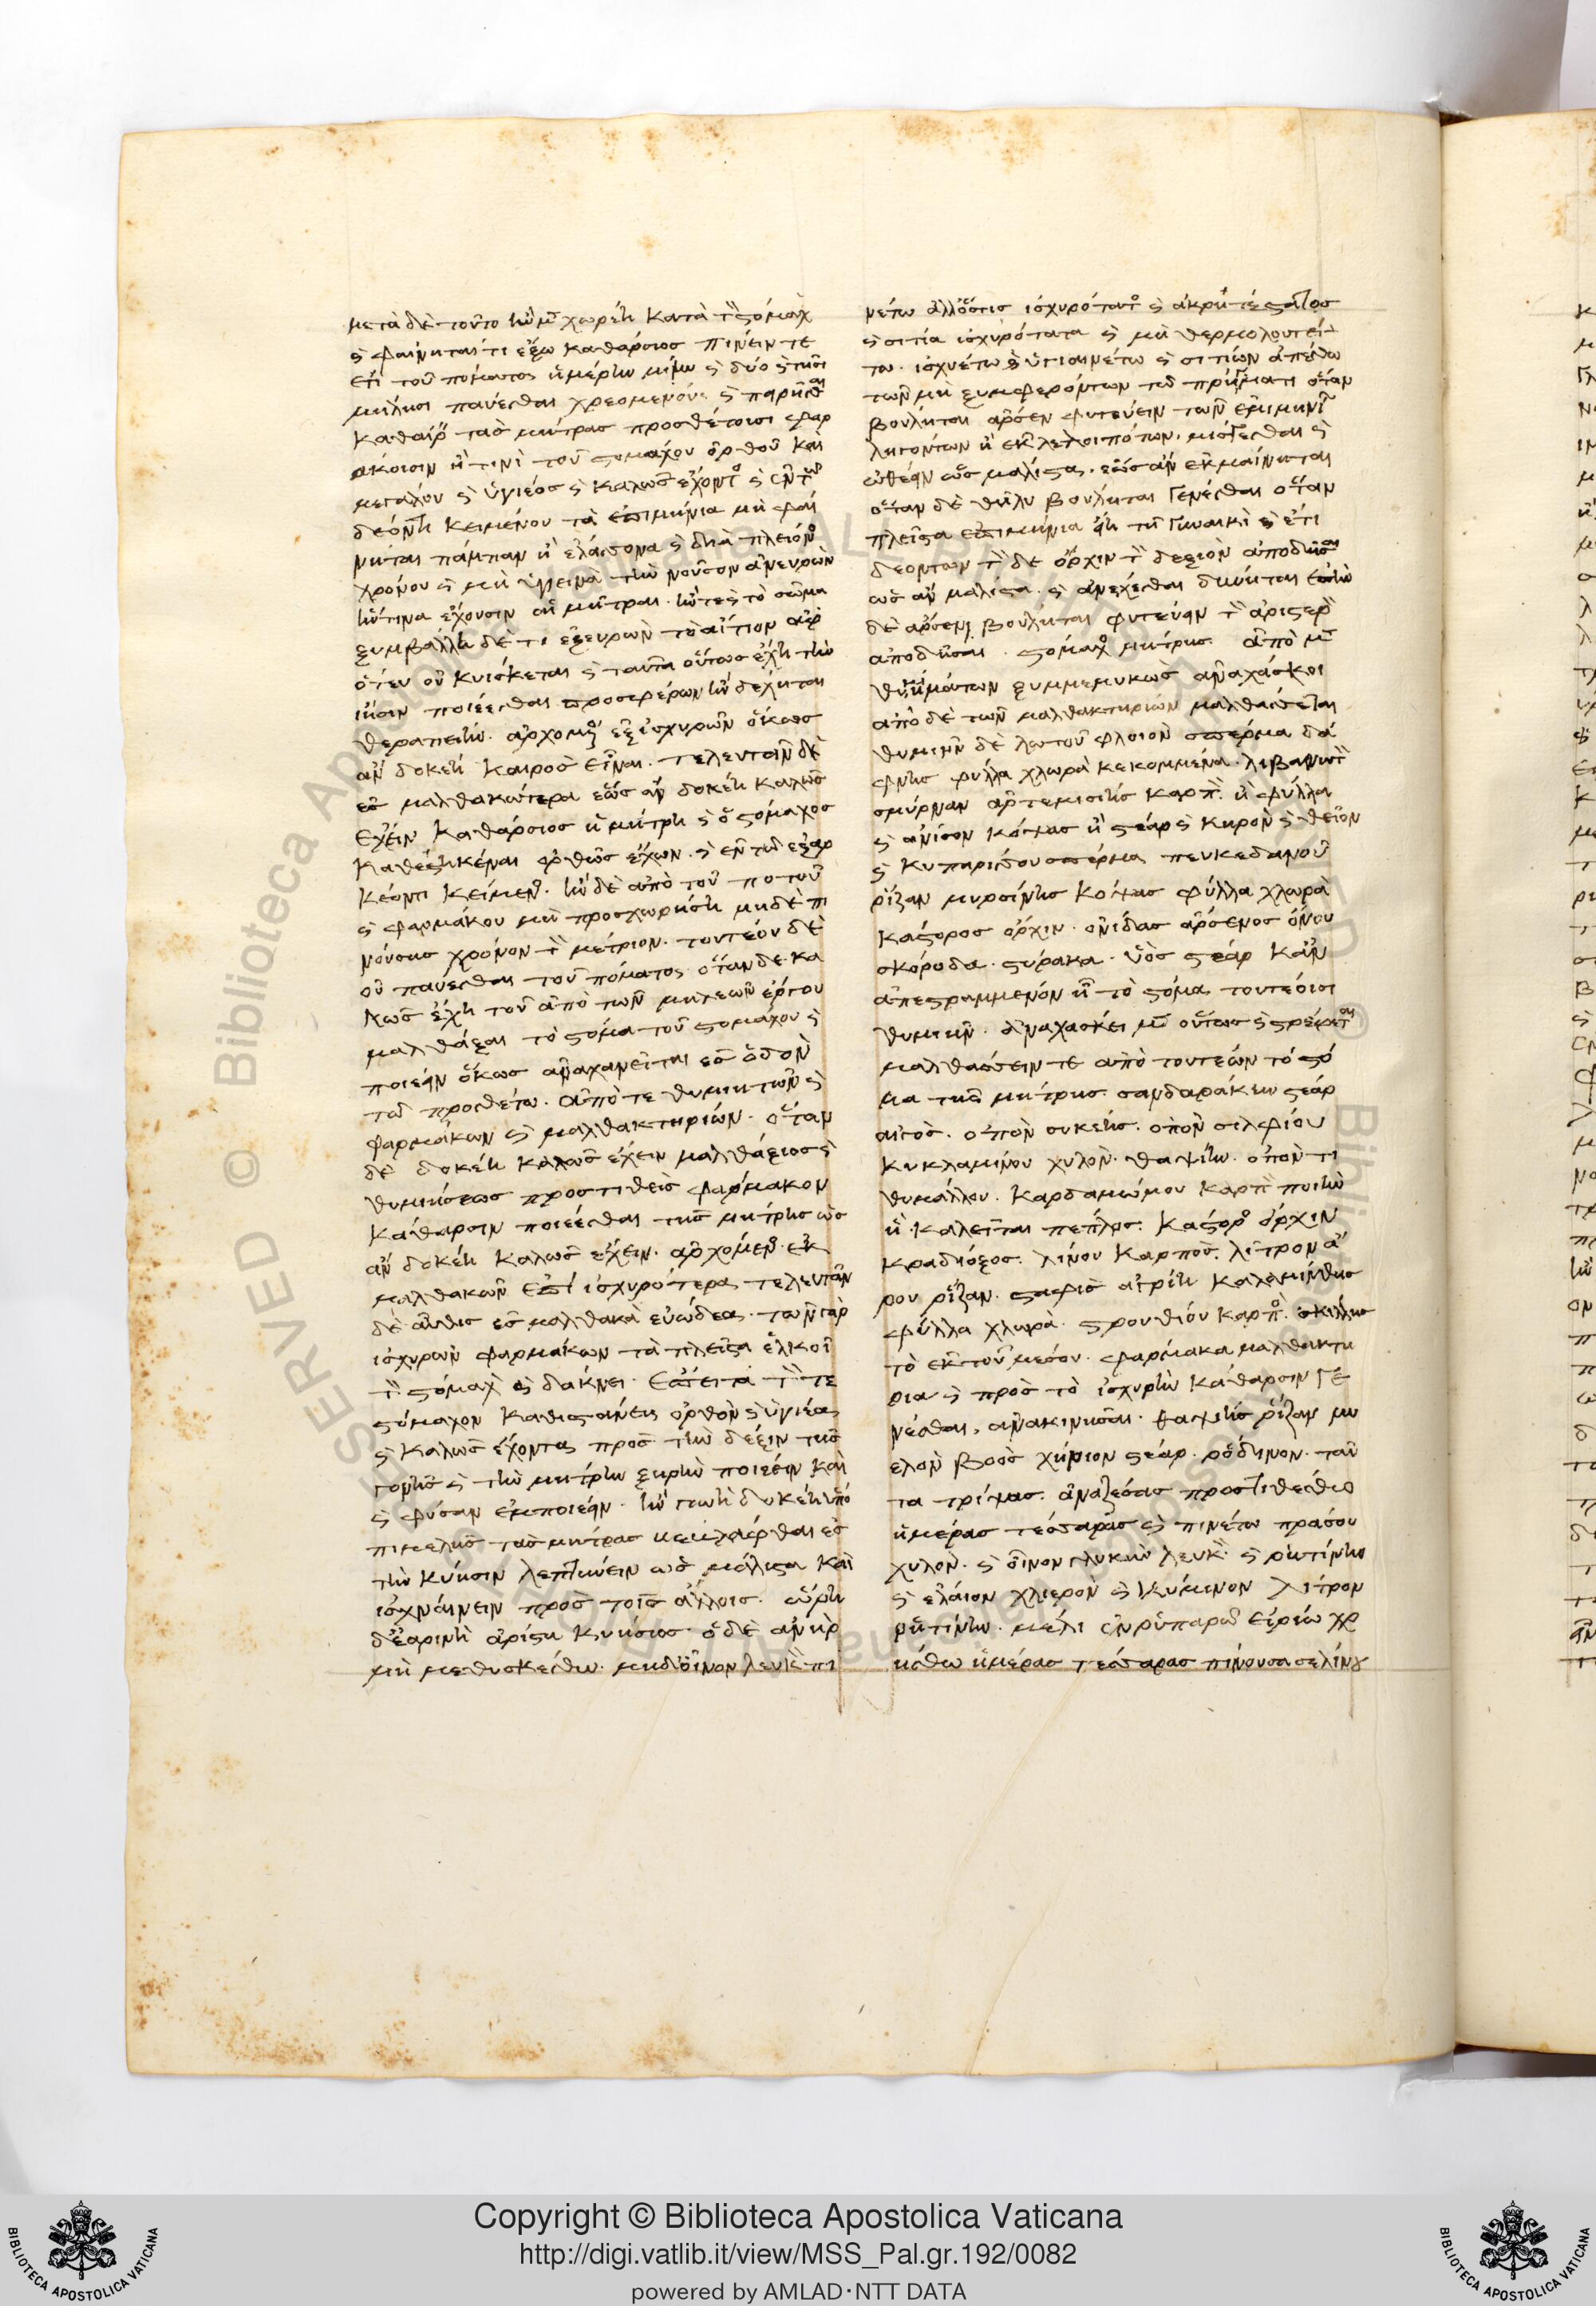 μετὰ δὲ τοῦτο ἢν μὲν χωρέη κατὰ τὸν στόμαχ
καὶ φαίνηταί τι ἔξω καθάρσιος πίνειν τε
ἔτι τοῦ πόματος ἡμέρην μίην καὶ δύο καὶ τῆσι
παύεσθαι
καθαίρ τὰς μήτρας προσθέτοισι φαρ
μάκοισιν ἤν τινι τοῦ στομάχου ὀρθοῦ καὶ
μεγάλου καὶ ὑγιέος καὶ καλῶς ἔχοντος καὶ ἐν τῷ
δέοντι κειμένου τὰ ἐπιμήνια μὴ φαί
νηται πάμπαν ἢ ἐλάσσονα καὶ διὰ πλείονος
χρόνου καὶ μὴ ὑγιεινὰ τὴν νοῦσον ἀνευρὼν
ἥντινα ἔχουσιν αἱ μῆτραι ἤν τε καὶ τὸ σῶμα
ξυμβάλλη δέ τι ἐξευρὼν τὸ αἴτιον
ὅτευ οὐ κυΐσκεται καὶ ταῦτα οὕτως ἔχη τὴν
ἴησιν ποιέεσθαι προσφέρων ἢν δέχηται
θεραπείην. ἀρχομένου ἐξ ἰσχυρῶν ὅκως
ἂν δοκέη καιρὸς εἶναι. τελευτᾶν δὲ
ἐς μαλθακώτερα ἕως ἂν δοκέη καλῶς
ἔχειν καθάρσιος ἡ μήτρη καὶ ὁ στόμαχος
καθεστηκέναι ὀρθῶς ἔχων. καὶ ἐν τῷ
κείμενος. ἢν δὲ ἀπὸ τοῦ ποτοῦ
καὶ φαρμάκου μὴ προσχωρήση μηδὲ
νοῦσος χρόνον τὸν μέτριον.
οὐ παύεσθαι τοῦ πόματος ὅταν δὲ κα
λῶς ἔχη τοῦ ἀπὸ τῶν μητρέων ἔργου
μαλθάξαι τὸ στόμα τοῦ στομάχου καὶ
ποιέειν ὅκως ἀναχανεῖται ἐς ὁδὸν
τῶ προσθέτω. ἀπό τε θυμιητῶν καὶ
φαρμάκων καὶ μαλθακτηρίων. ὅταν
δὲ δοκέη καλῶς ἔχειν μαλθάξιος καὶ
θυμιήσεως προστιθεὶς φάρμακον
κάθαρσιν ποιέεσθαι τῆς μήτρης ὡς
ἂν δοκέη καλῶς ἔχειν. ἀρχόμενος ἐκ
μαλθακῶν ἐπὶ ἰσχυρότερα τελευτᾶν
δὲ αὖθις ἐς μαλθακὰ εὐώδεα. τῶν γὰρ
ἰσχυρῶν φαρμάκων τὰ πλεῖστα ἑλκοῖ
τὸν στόμαχ καὶ δάκνει. ἔπειτα τόν τε
στόμαχον καθιστάνειν ὀρθὸν καὶ ὑγιέα
καὶ καλῶς ἔχοντα πρὸς τὴν δέξιν τῆς
γονῆς καὶ τὴν μήτρην ξηρὴν ποιέειν καὶ
καὶ φῦσαν ἐμποιέειν. ἢν δοκέη ὑπὸ
πιμελῆς τὰς μήτρας ἐς
τὴν κύησιν λεπτύνειν ὡς μάλιστα καὶ
ἰσχναίνειν πρὸς τοῖς ἄλλοις. ὥρη
δὲ ἐαρινὴ ἀρίστη κυήσιος. ὁ δὲ ἀνὴρ
μὴ μεθυσκέσθω. μηδ οἶνον λευκὸν πι
νέτω ἀλλ ὅστις ἰσχυρότατος καὶ ἀκρητέστατος
καὶ σιτία ἰσχυρότατα καὶ μὴ θερμολουτεί
τω. ἰσχυέτω καὶ ὑγιαινέτω καὶ σιτίων ἀπεχέσθω
τῶν μὴ ξυμφερόντων τῶ πρήγματι ὅταν
βούληται ἄρσεν φυτεύειν τῶν ἐπιμηνίων
ληγόντων ἢ ἐκλελοιπότων. μίσγεσθαι καὶ
ὠθέειν ὡς μάλιστα. ἕως ἂν ἐκμαίνηται
ὅταν δὲ θῆλυ βούληται γενέσθαι ὅταν
πλεῖστα ἐπιμήνια ἴη τῆ γυναικὶ καὶ ἔτι
δεόντων τὸν δὲ ὄρχιν τὸν δεξιὸν ἀποδῆσαι
ὡς ἂν μάλιστα. καὶ ἀνέχεσθαι δύνηται
δὲ ἄρσενα βούληται φυτεύειν τὸν ἀριστερὸν
ἀποδῆσαι. στόμαχος μήτρης ἀπὸ μὲν
θυμιημάτων ξυμμεμυκὼς ἀναχάσκει
ἀπὸ δὲ τῶν μαλθακτηρίων μαλθάσσεται
θυμιῆν δὲ λωτοῦ φλοιὸν σπέρμα δά
φνης φύλλα χλωρὰ κεκομμένα. λιβανωτὸν
σμύρναν ἀρτεμισίης καρπὸν. ἢ φύλλα
καὶ ἄνισον κόψας ἢ στέαρ καὶ κηρὸν καὶ θεῖον
καὶ κυπαρίσσου σπέρμα πευκεδάνου
ῥίζαν μυρσίνης κόψας φύλλα χλωρὰ
κάστορος ὄρχιν. ὀνίδας ἄρσενος ὄνου
σκόροδα. στύρακα. ὑὸς στέαρ κἂν
ἀπεστραμμένον ἦ τὸ στόμα τουτέοισι
θυμιῆν. ἀναχάσκει μὲν οὕτως καὶ στρέφεται
μαλθάσσειν τε ἀπὸ τουτέων τὸ στό
μα τῆς μήτρης. σανδαράκην στέαρ
αἰγός. ὀπὸν συκέης. ὀπὸν σιλφίου
κυκλαμίνου χυλόν. θαψίην. ὀπὸν τι
θυμάλλου. καρδαμώμου καρπὸν ποίην
ἣ καλεῖται πέπλος. κάστορος ὄρχιν
κράδης ὄξος. λίνου καρπόν. λίτρον ἄ
ρου ῥίζαν. σταφὶς ἀγρίη καλαμίνθης
φύλλα χλωρά. στρουθίου καρπὸς. σκίλλης
τὸ ἐκ τοῦ μέσου. φάρμακα μαλθακτή
ρια καὶ πρὸς τὸ ἰσχυρὴν κάθαρσιν γε
νέσθαι, ἀνακινῆσαι. θαψίης ῥίζαν μυ
ελὸν βοὸς χήνιον στέαρ. ῥόδινον. ταῦ
τα τρίψας. ἀναζέσας προστιθέσθω
ἡμέρας τέσσαρας καὶ πινέτω πράσου
χυλόν. καὶ οἶνον γλυκὺν λευκὸν. καὶ ῥητίνην
καὶ ἔλαιον χλιερὸν καὶ κύμινον λίτρον
ῥητίνην. μέλι ἐν ῥυπαρῶ εἰρίω χρ
ήσθω ἡμέρας τέσσαρας πίνουσα σελίνου
Copyright © Biblioteca Apostolica Vaticana
http://digi.vatlib.it/view/MSS_Pal.gr.192/0082
powered by AMLAD·NTT DATA